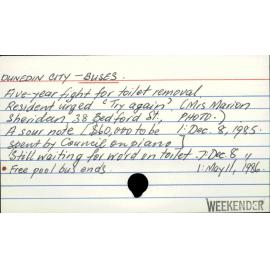 DUNEDIN CITY - BUSES.
Five-year fight for toilet removal.
Resident urged "Try again". (Mrs Marion
Sheridan, 38 Bedford St., PHOTO.)
A sour note [$60,000 to be 1: Dec. 8, 1985.
spent by Council on piano]
Still waiting for word on toilet. 7: Dec 8 "
• Free pool bus ends. 1: May 11, 1986.
WEEKENDER